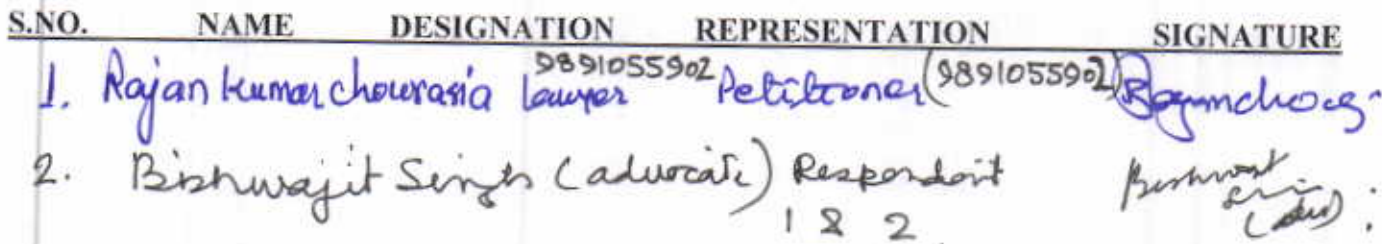 S.NO. NAME DESIGNATION REPRESENTATION SIGNATURE
1. Rajan kumar chourasia lawyer 9891055902 Petitioner (9891055902)
2. Bishwajit Singh (advocate) Respondent
1 & 2